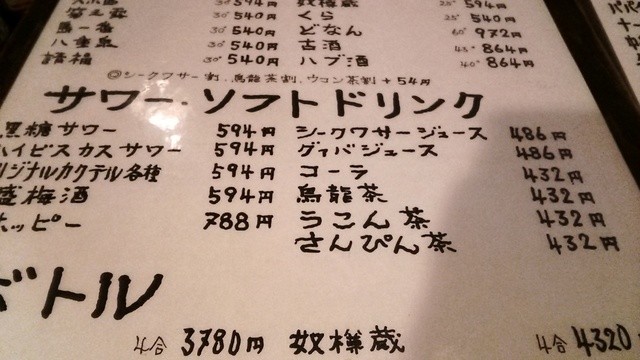 30° 594円 奴樽蔵 25° 594円
菊之露 30° 540円 くら 25° 540円
30° 540円 どなん 60° 972円
八重泉 30° 540円 古酒 43° 864円
請福 30° 540円 ハブ酒 40° 864円
◎シークワサー割、烏龍茶割、ウコン茶割 +54円
サワー・ソフトドリンク
黒糖サワー 594円 シークワサージュース 486円
ハイビスカスサワー 594円 グァバジュース 486円
リジナルカクテル各種 594円 コーラ 432円
盛梅酒 594円 烏龍茶 432円
ホッピー 788円 うこん茶 432円
さんぴん茶 432円
ボトル
4合 3780円 奴樽蔵 4合 4320